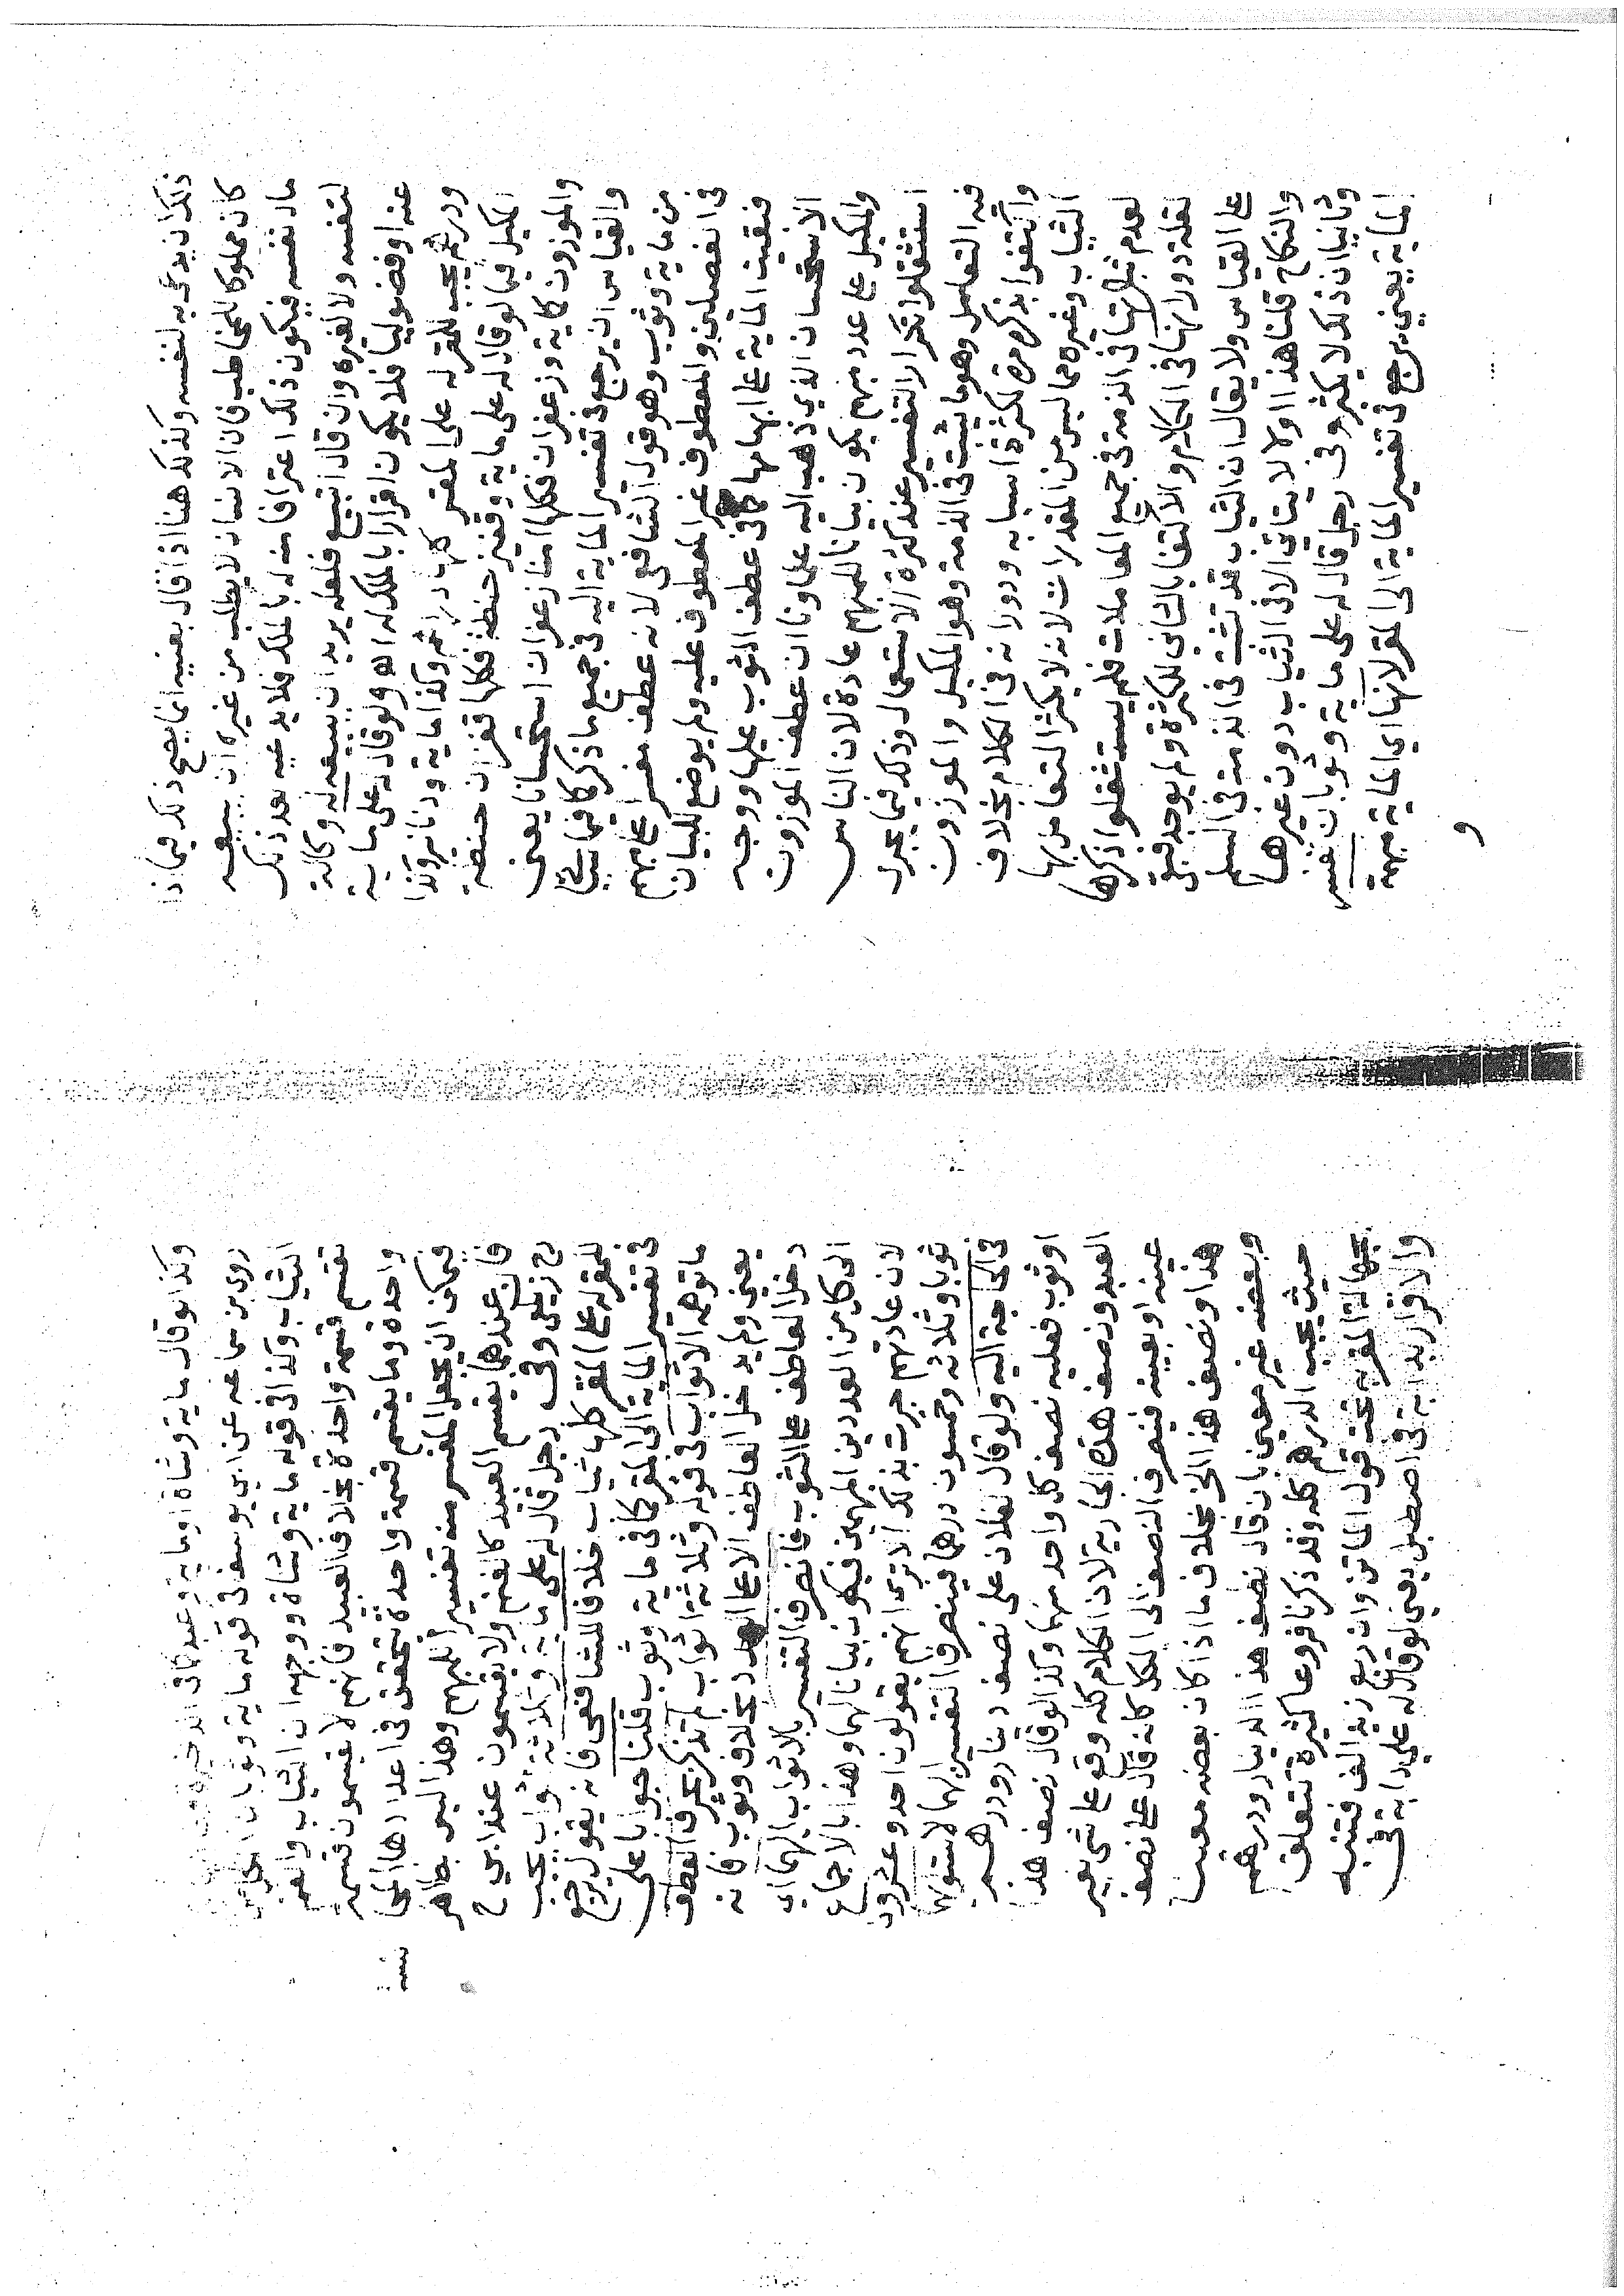 ذلك ان يدعيه لنفسه وكذلك هنا اذا قال بعنيه انما يصح ذلك فيما اذا
كان مملوكا للمخاطب فان الانسان لا يطلب من غيره ان يبيعه
مال نفسه فيكون ذلك اعترافا منه له بالملك فلا يدعيه بعد ذلك
لنفسه ولا لغيره وان قال اتبيع فلعله يريد ان يبيعه له وكالة
عنه او فضوليا فلا يكون اقرارا بالملك له اه ولو قال له على ماية
ودرهم يجب للمقر له على المقر كلها دراهم وكذا ماية ودنانير وكذا
المكيل فيما لو قال له على ماية وقفيز حنطة فكلها قفزان حنطة
والموزون كماية وزعفران فكلها امنا زعفران استحسانا يعني
والقياس ان يرجع في تفسير الماية اليه في جميع ما ذكر كما فيما سياتي
من ماية وثوب وهو قول الشافعي لانه عطف مفسرا على مبهم
في الفصلين والمعطوف غير المعطوف عليه ولم يوضع للبيان
فبقيت الماية على ابهامها كما في عطف الثوب عليها ووجه
الاستحسان الذي ذهب اليه علماونا ان عطف الموزون
والمكيل على عدد مبهم يكون بيانا للمبهم عادة لان الناس
استثقلوا تكرار التفسير عند كثرة الاستعمال وذلك فيما يجري
فيه التعامل وهو ما يثبت في الذمة وهو المكيل والموزون
واكتفوا بذكره مرة لكثرة اسبابه ودورانه في الكلام بخلاف
الثياب وغيره مما ليس من المقدرات لانه لا يكثر التعامل بها
لعدم ثبوتها في الذمة في جميع المعاملات فلم يستثقلوا ذكرها
لقلة دورانها في الكلام والاكتفا بالثاني للكثرة ولم يوجد فبقي
على القياس ولا يقال ان الثياب قد تثبت في الذمة في السلم
والنكاح قلنا هذا اولا لا يتاتى الا في الثياب دون غيرها
وثانيا ان ذلك لا يكثر وفي رجل قال له على ماية وثوبان تفسر
الماية يعني يرجع في تفسير الماية الى المقر لانها اي الماية مبهمة
و
وكذا لو قال ماية وشاة او ماية وعبد كما في الذخيرة
روى بن سماعه عن ابي يوسف في قوله ماية وثوبان
الثياب وكذا في قوله ماية وشاة ووجهه ان الثياب والغنم
تقسم قسمة واحدة بخلاف العبيد فانهم لا يقسمون قسمة
واحدة وما يقسم قسمة واحدة يتحقق في اعدادها
فيمكن ان يجعل المفسر منه تفسيرا للمبهم وهذا ليس بظاهر
فان عندهما يقسم العبيد كالغنم ولا يقسمون عند ابي ح
رح زيلعي وفي رجل قال له على ماية وثلاثة اثواب يجب
للمقر له على المقر كلها ثياب خلافا للشافعي فانه يقول يرجع
في تفسير الماية الى المقر كما في ماية وثوب قلنا جوابا على
ما توهمه الاثواب في قوله وثلاثة اثواب لم تذكر بحرف العطف
يعني ولم يدخل العاطف الا على العدد بخلاف وثوب فانه
دخل العاطف على الثوب فانصرف التفسير بالاثواب اليهما اي
الى كل من العددين المبهمين فيكون بيانا لهما وهذا بالاجماع
لان عادتهم جرت بذلك الا ترى انهم يقولون احد وعشرون
ثوبا وثلاثه وخمسون درهما فينصرف التفسير اليهما لاستوائهما
في الحاجة اليه ولو قال لفلان على نصف دينار ودرهم
او ثوب فعليه نصف كل واحد منهما وكذا لو قال نصف هذا
العبد ونصف هذه الجارية لان الكلام كله وقع على شي بغير
عينه او بعينه فينصرف النصف الى الكل كانه قال على نصف
هذا ونصف هذا الخ بخلاف ما اذا كان بعضه معينا
وبعضه غير معين بان قال نصف هذا الدينار ودرهم
حيث يجب الدرهم كله وقد ذكرنا فروعا كثيرة تتعلق
بجهالة المقر به تحت قول الماتن وان ربع زيد الف فتنبه
والاقرار بدابة في اصطبل يعني لو قال له علي دابة في